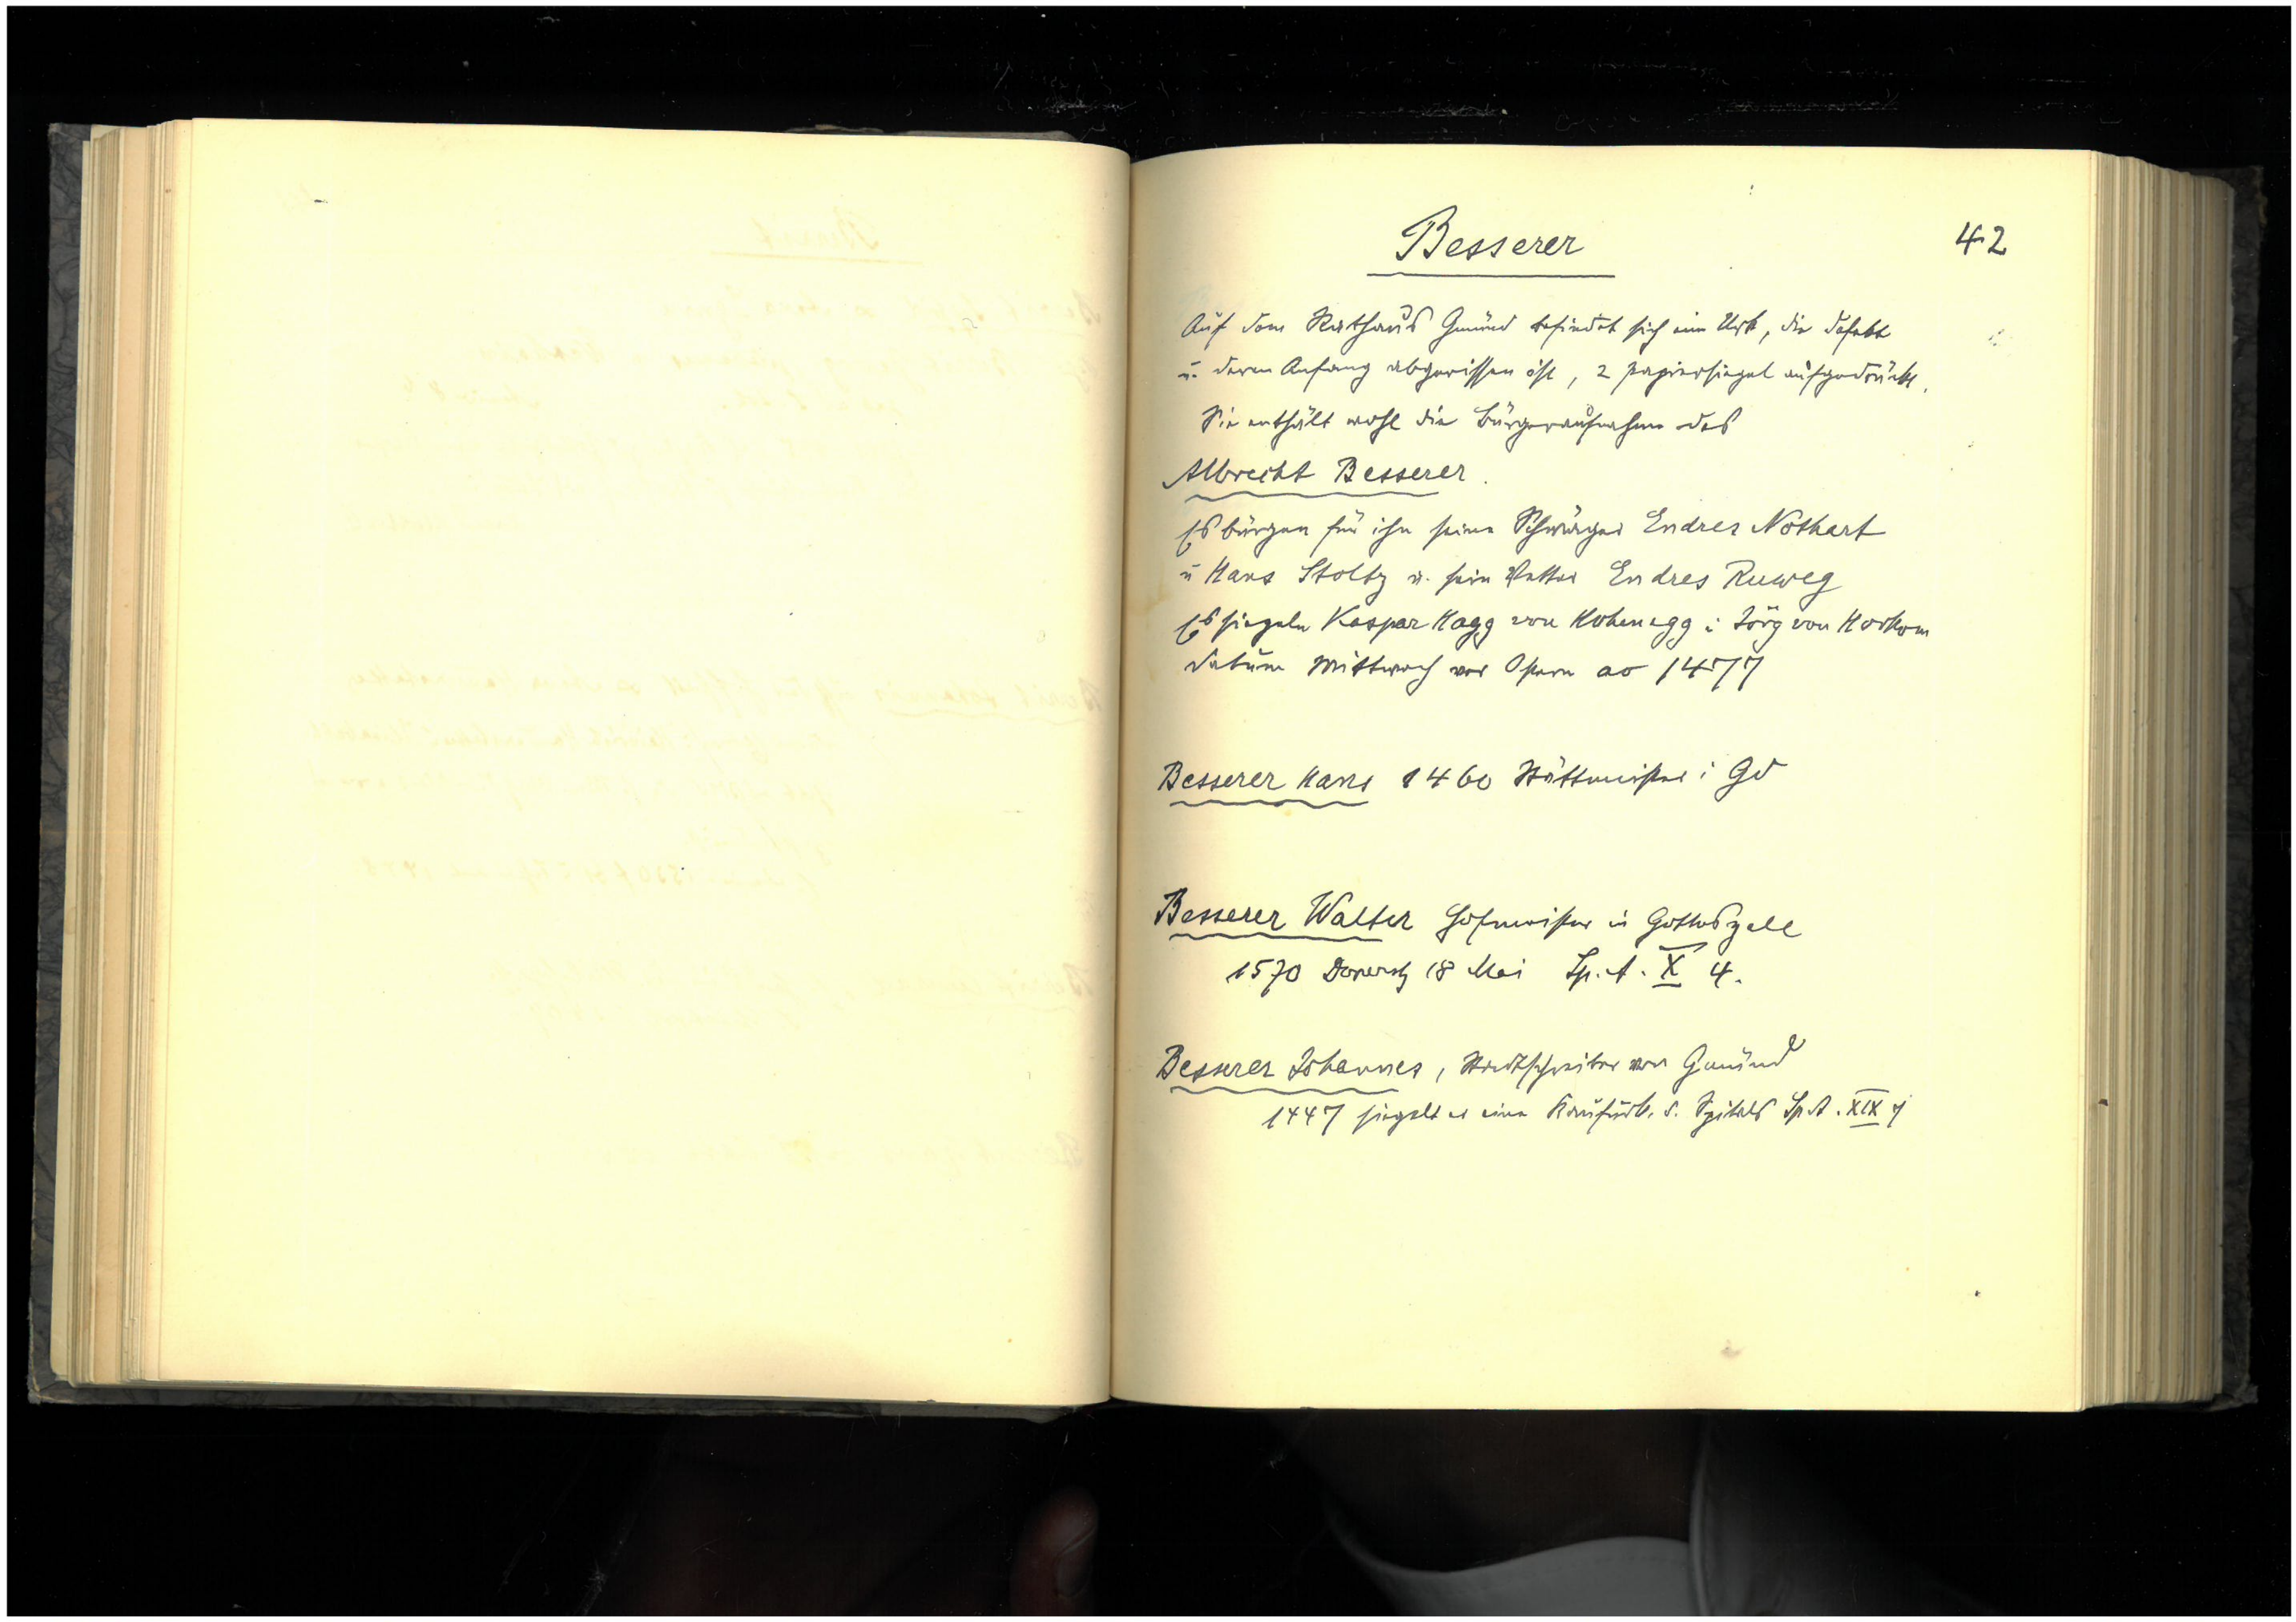 Besserer
42
Auf dem Rathaus Gmünd befindet sich eine Urk, die defekt
u. deren Anfang abgerissen ist, 2 Papiersiegel aufgedrückt.
Sie enthält wohl die Bürgeraufnahme des
Albrecht Besserer.
Es bürgen für ihn seine Schwäger Endres Nothart
u Hans Stoltz u. sein Vetter Endres Ruweg
Es siegeln Kaspar Hagg von Hohenegg u Jörg von Horkom
Datum Mittwoch vor Ostern ao 1477
Besserer Hans 1460 Stättmeister i Gd
Besserer Walter Hofmeister in Gotteszell
1570 Donerstg 18 Mai Sp. A. X 4.
Besserer Johannes, Stadtschreiber von Gmünd
1447 siegelt er eine Kaufurk. d. Spitals Sp. A. XIX 7